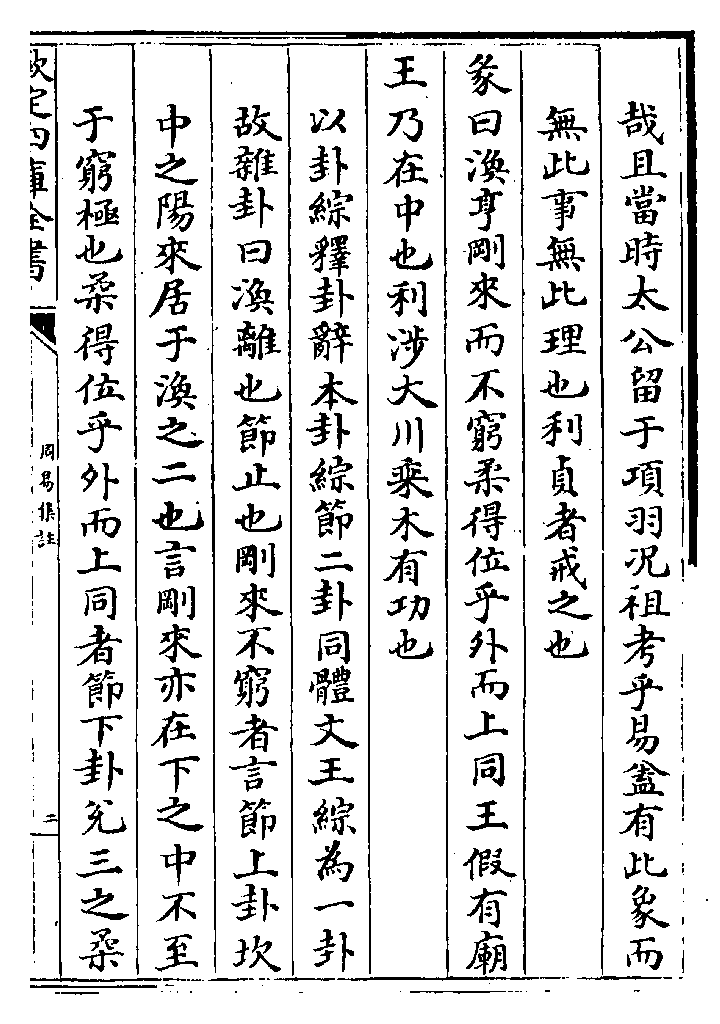 哉且當時太公留于項羽况祖考乎易盖有此象而
無此事無此理也利貞者戒之也
彖曰渙亨剛來而不窮柔得位乎外而上同王假有廟
王乃在中也利涉大川乘木有功也
以卦綜釋卦辭本卦綜節二卦同體文王綜為一卦
故雜卦曰渙離也節止也剛來不窮者言節上卦坎
中之陽來居于渙之二也言剛來亦在下之中不至
于窮極也柔得位乎外而上同者節下卦兊三之柔
欽定四庫全書
周易集註
二